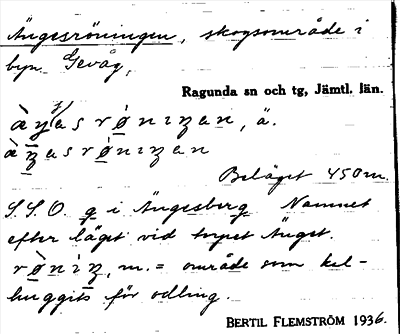 Ängesröningen, skogsområde i
byn Gevåg,
Ragunda sn och tg, Jämtl. län.
ä.
Beläget 450 m.
S.S.O. g i Ängesberg. Namnet
efter läget vid torpet Änget.
m. = område som kal-
huggits för odling.
BERTIL FLEMSTRÖM 1936.